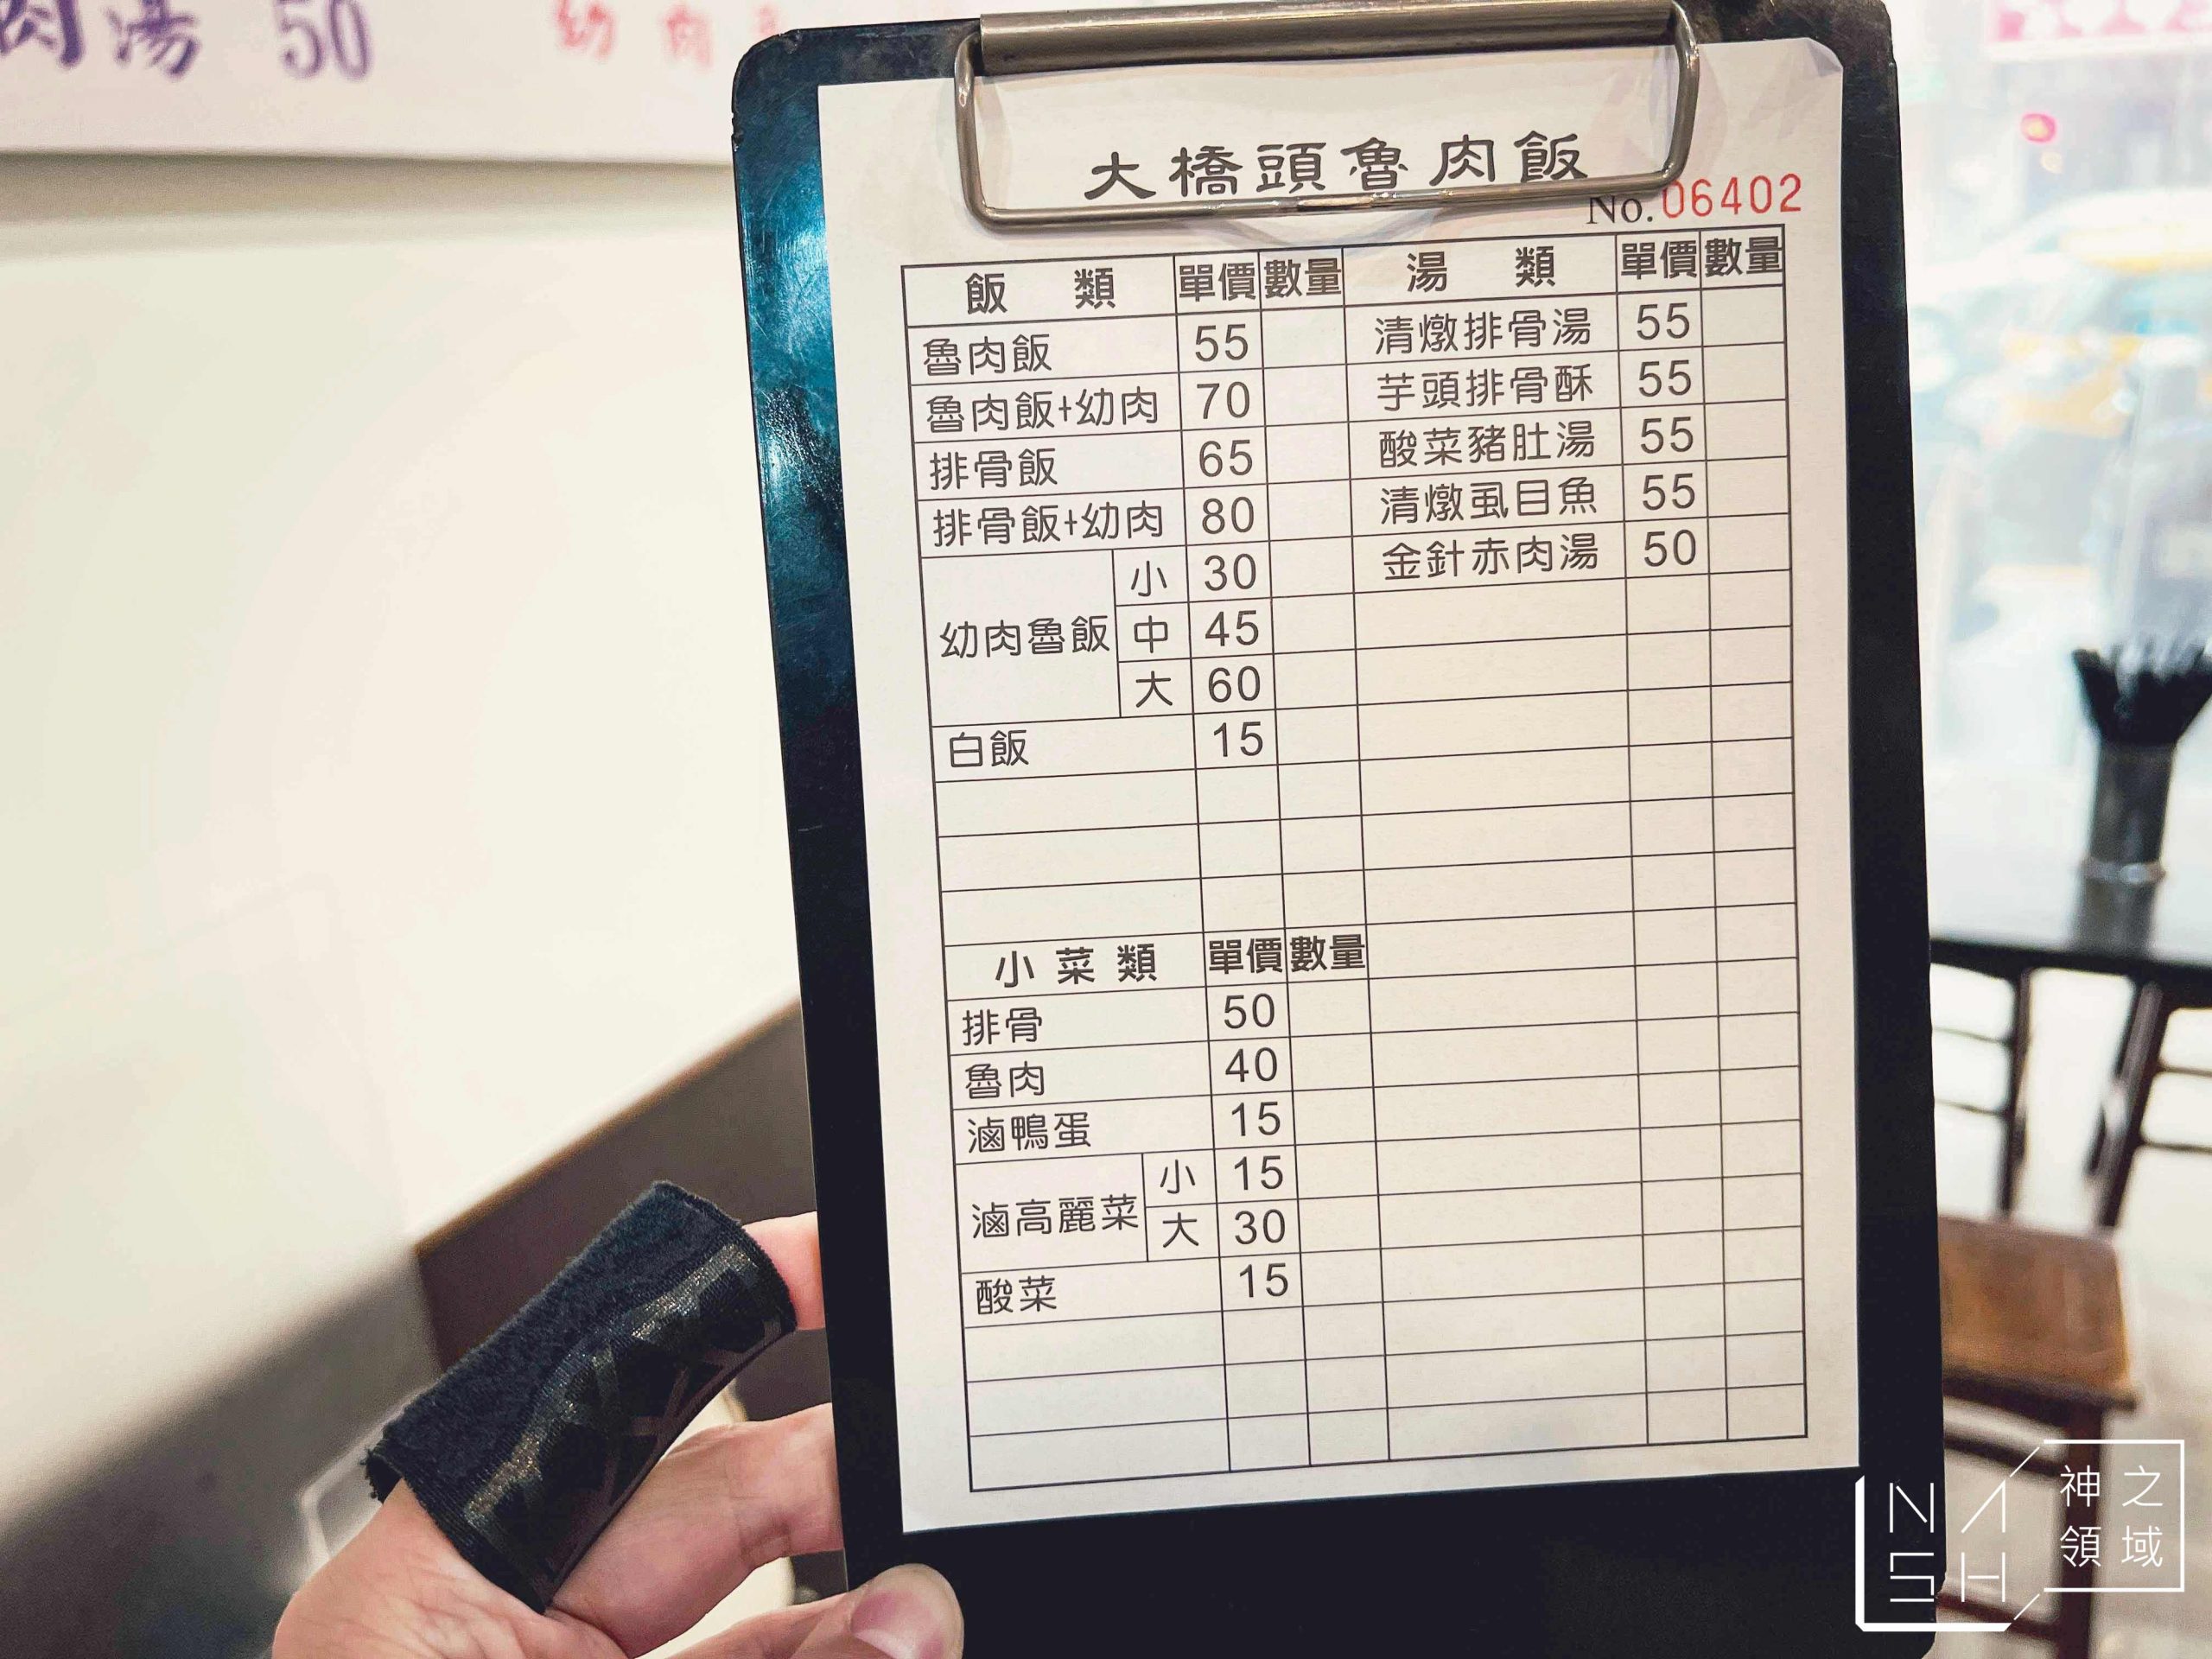 肉湯 50
幼肉
大橋頭魯肉飯
No. 06402
飯類 單價 數量 湯類 單價 數量
魯肉飯 55 清燉排骨湯 55
魯肉飯+幼肉 70 芋頭排骨酥 55
排骨飯 65 酸菜豬肚湯 55
排骨飯+幼肉 80 清燉虱目魚 55
幼肉魯飯 小 30 金針赤肉湯 50
中 45
大 60
白飯 15
小菜類 單價 數量
排骨 50
魯肉 40
滷鴨蛋 15
滷高麗菜 小 15
大 30
酸菜 15
NASH
神之領域